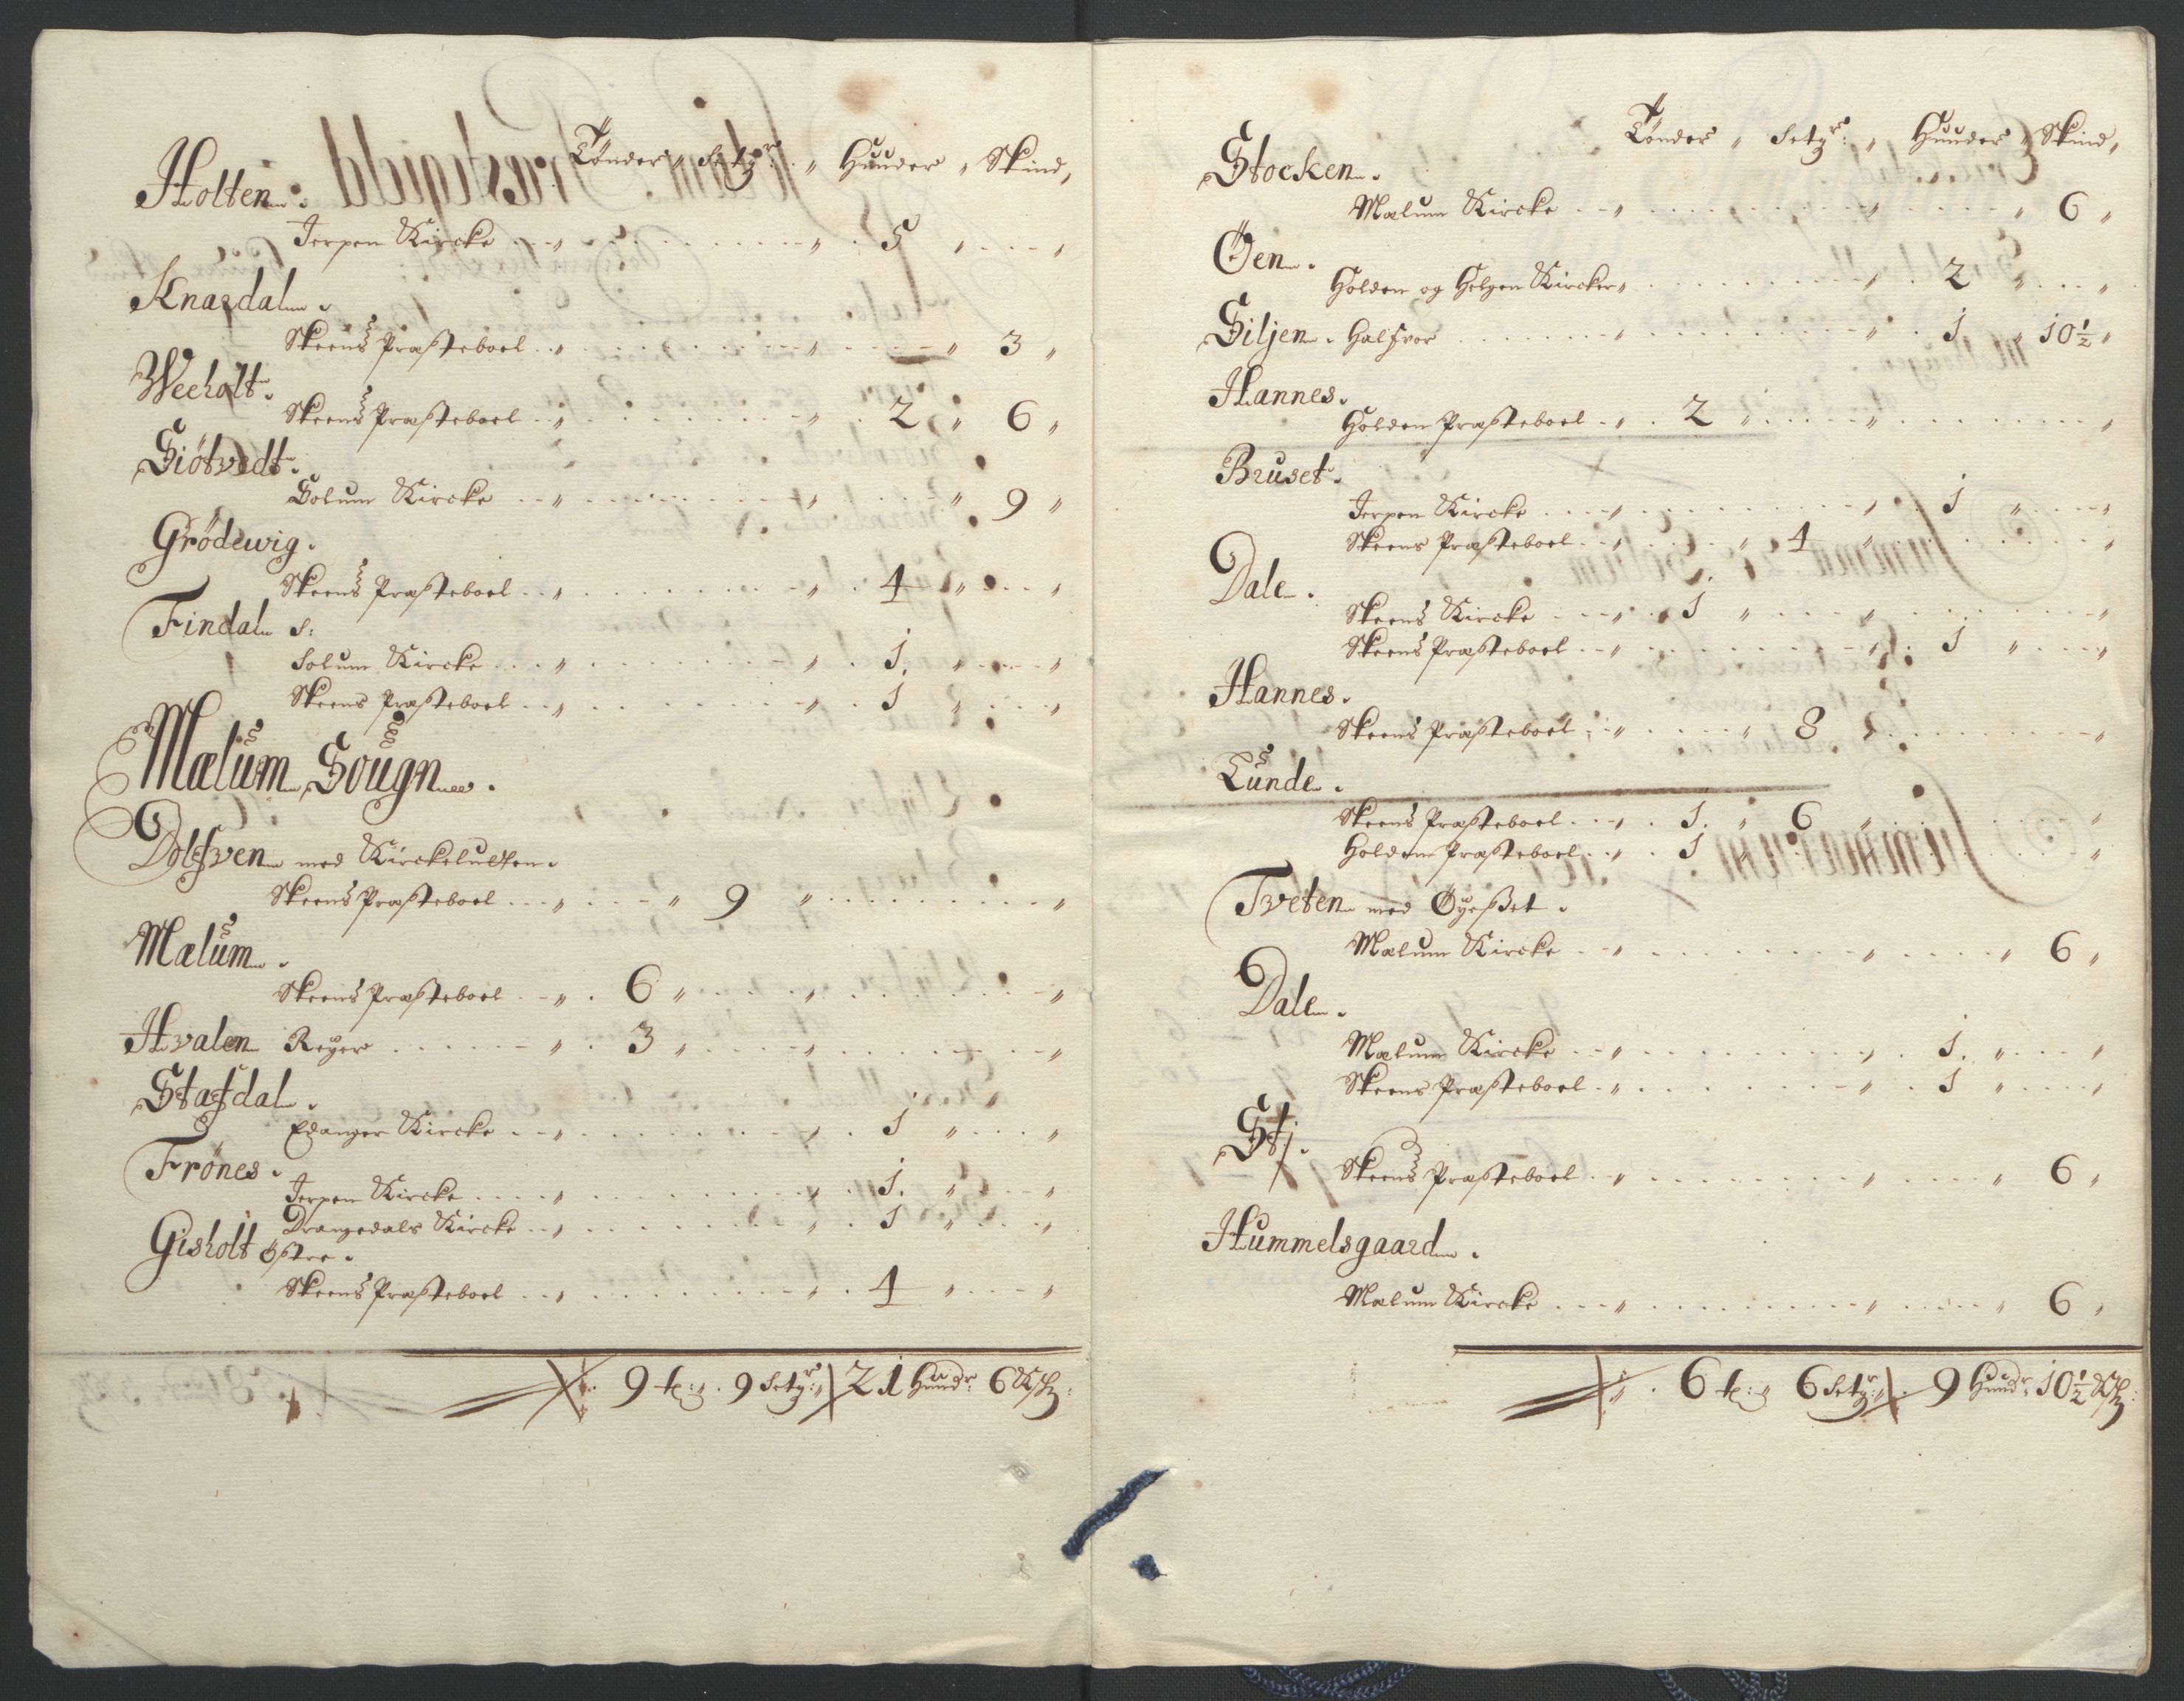 Tönder „ Setg:r „ Hunder „ Skind,
Holten.
Jerpen Kircke . . . „ . . . „ . 5 „ . . . „
Knardal.
Skeens Præsteboel . . „ . . . „ . . . „ 3 „
Weeholt.
Skeens Præsteboel . . „ . . . „ . 2 „ 6 „
Giötvedt.
Solum Kircke . . „ . . . „ . . . „ 9 „
Grödewig.
Skeens Præsteboel . . „ . . . „ . 4 „ . . „
Findal S:
Solum Kircke . . . „ . . . „ . 1. „ . . . „
Skeens Præsteboel . . „ . . . „ . 1 „ . . . „
Mælum Sougn.
Dolfven med Kirckelulten.
Skeens Præsteboel . . . „ . . . „ 9 „ . . . „
Mælum.
Skeens Præsteboel . . „ . 6 „ . . . „ . . . „
Hvalen Reyer . . . . . „ . 3 „ . . . „ . . . „
Stafdal.
Edanger Kircke . . „ . . . „ . 1 „ . . . „
Frönes.
Jerpen Kircke . . . . „ . . . „ . 1. „ . . . „
Drangedals Kircke . . „ . . . „ . 1 „ . . . „
Gisholt östre.
Skeens Præsteboel . . „ . . . „ . 4 „ . . . „
9 t: „ . 9 Setg:r „ 21 Hund:r 6 Sk:
Tönder „ Setg:rs „ Hunder „ Skind,
Stocken.
Mælum Kircke . . „ . . . „ . . . „ 6 „
Öen.
Holden og Helgen Kircker „ . . . „ . 2 „ . . . „
Siljen. Halfvor . . . . . „ . . . „ . 1 „ 10½ „
Hannes.
Holden Præsteboel . „ . 2 „ . . . „ . . . „
Bruset.
Jerpen Kircke . . . . „ . . . „ . 1 „ . . . „
Skeens Præsteboel . . „ . . . „ 4 „ . . . „
Dale.
Skeens Kircke . . . „ . 1 „ . . . „ . . . „
Skeens Præsteboel . . „ . . . „ . 1 „ . . . „
Hannes.
Skeens Præsteboel . . „ . . . „ 8 „ . . . „
Lunde.
Skeens Præsteboel . . „ . 1. „ 6 „ . . . „
Holden Præsteboel . . „ . 1 „ . . . „
Tveten med Öyesset.
Mælum Kircke . . „ . . . „ . . . „ 6 „
Dale.
Mælum Kircke . . „ . . . „ . 1. „ . . . „
Skeens Præsteboel . „ . . . „ . 1 „ . . . „
Stj.
Skeens Præsteboel . „ . . . „ . . . „ 6 „
Hummelsgaard.
Mælum Kircke . . . „ . . . „ . . . „ 6 „
6 t: „ 6 Setg:r „ . 9 Hund:r 10½ Sk: